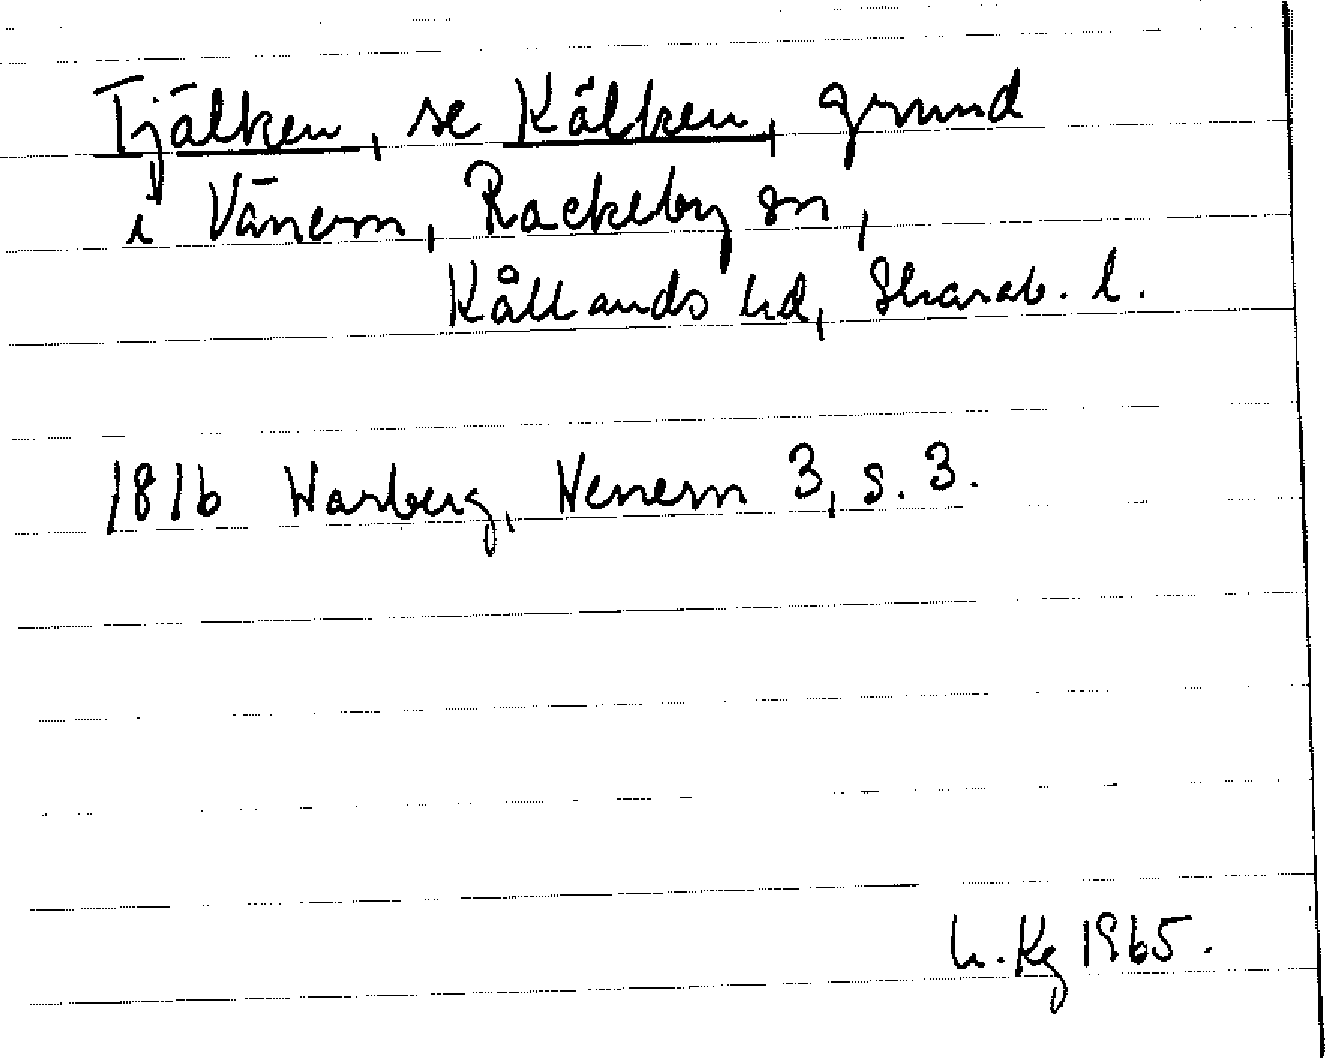 Tjälken, se Kälken, grund
i Vänern, Rackeby sn,
Kållands hd, Skarab. l.
1816 Warberg, Wenern 3, s. 3.
Kg 1965.